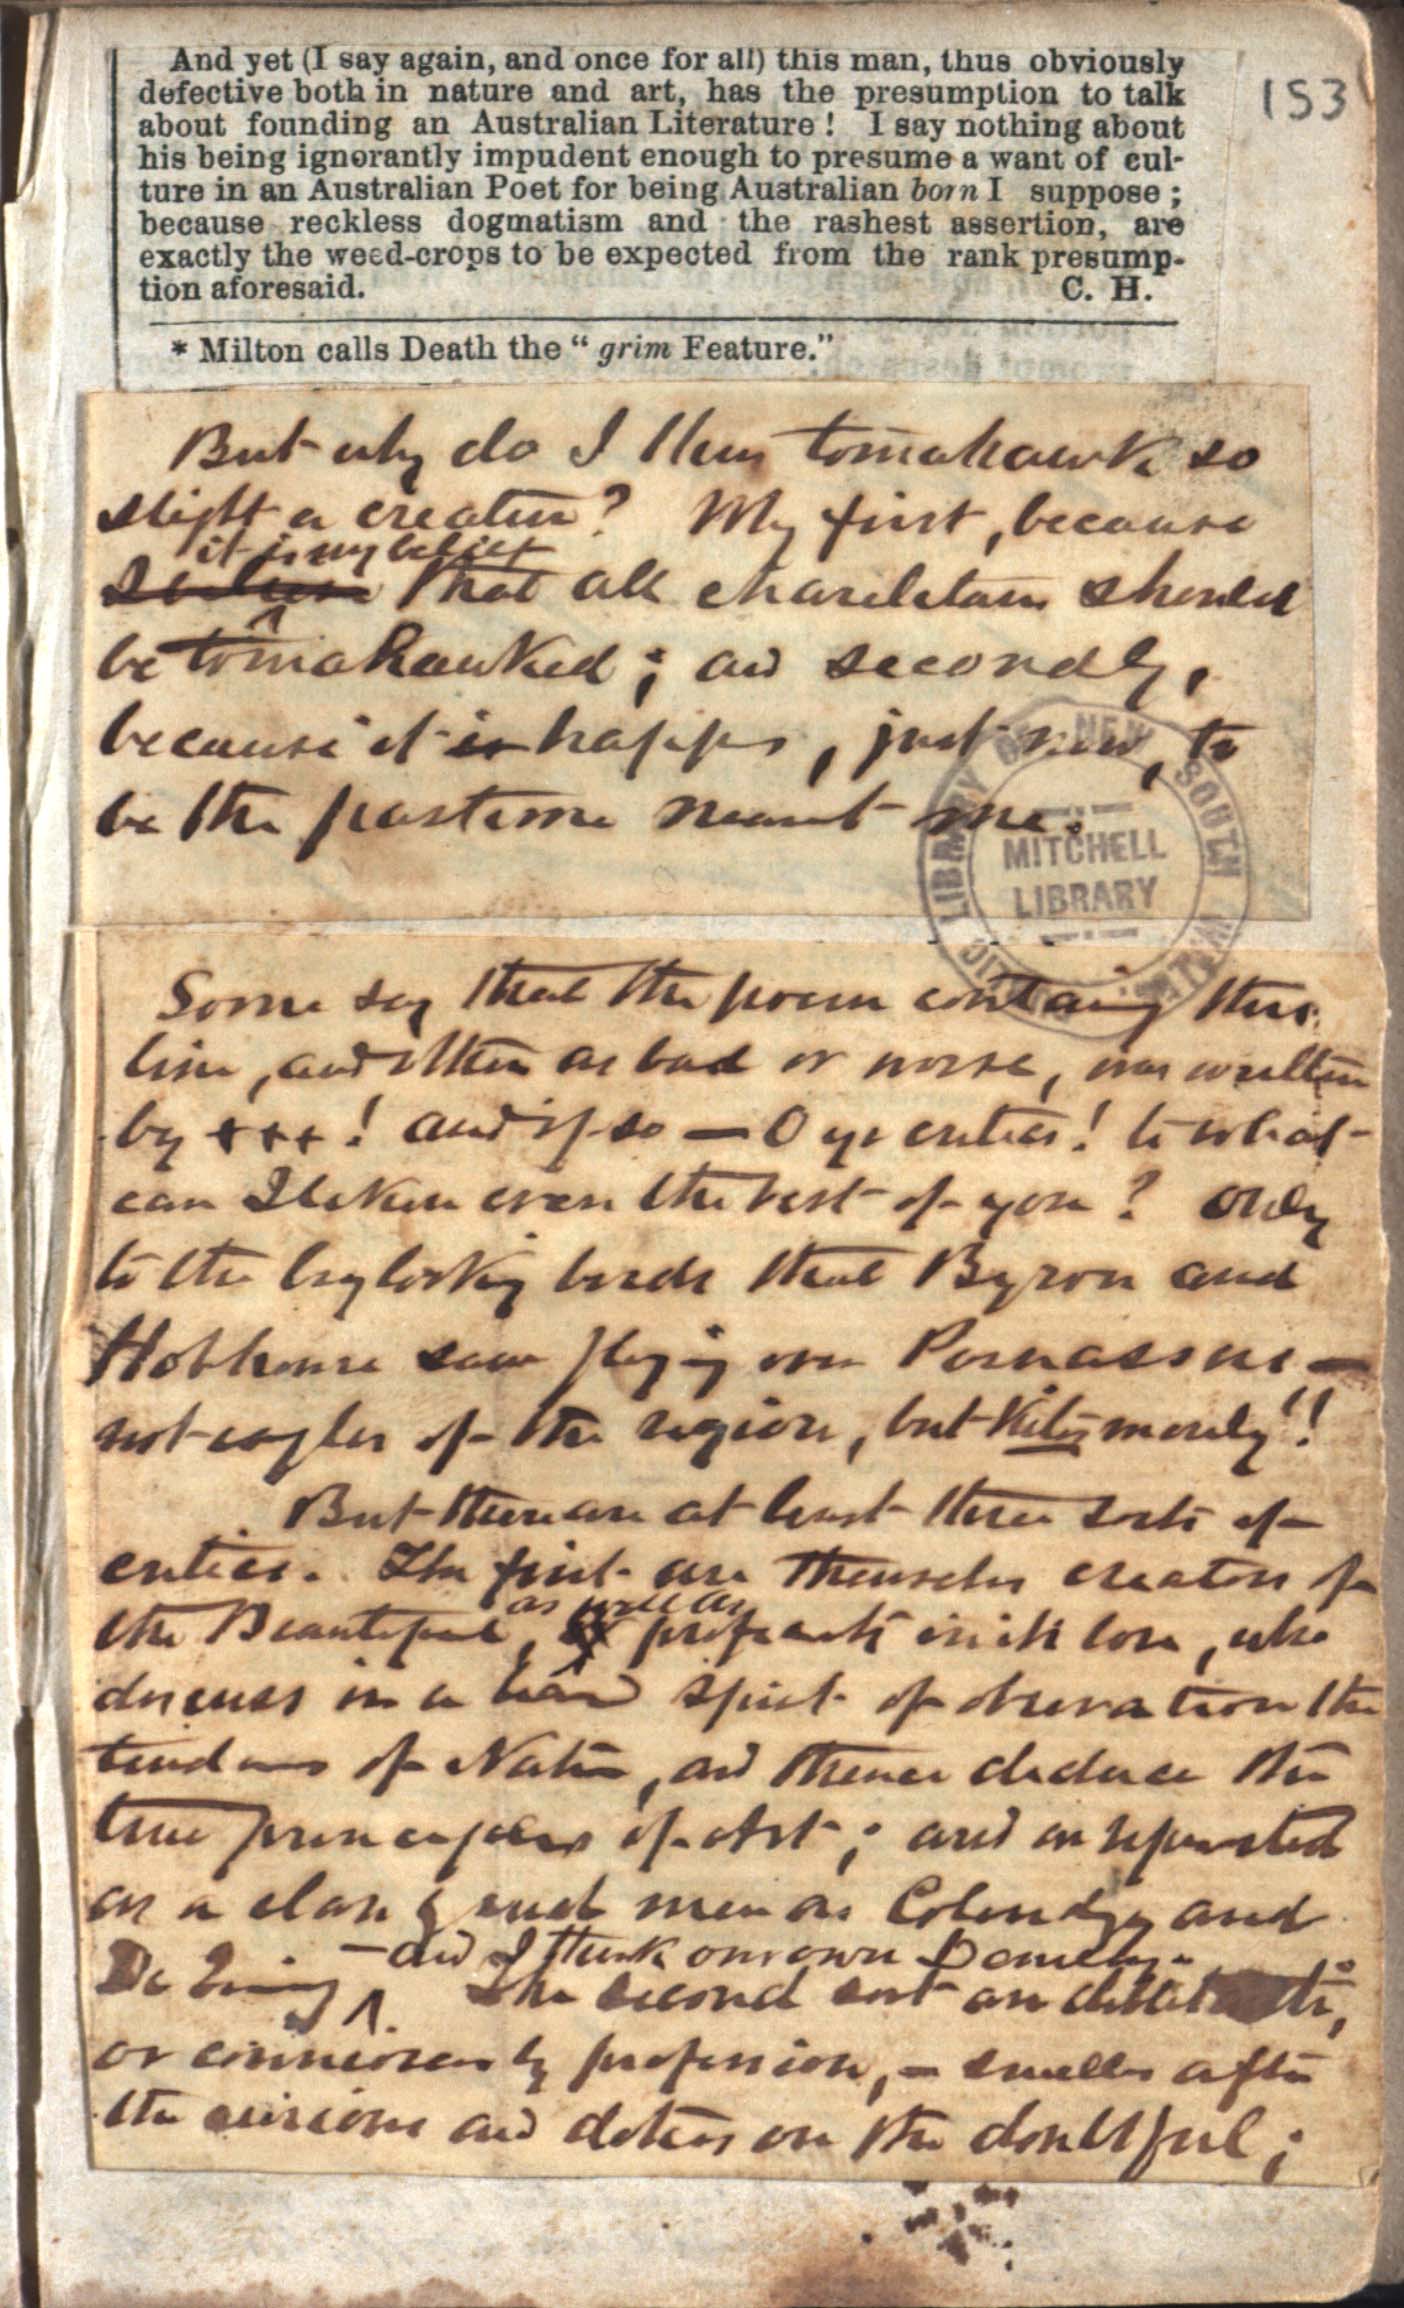 153
And yet (I say again, and once for all) this man, thus obviously
defective both in nature and art, has the presumption to talk
about founding an Australian Literature! I say nothing about
his being ignorantly impudent enough to presume a want of cul-
ture in an Australian Poet for being Australian born I suppose;
because reckless dogmatism and the rashest assertion, are
exactly the weed-crops to be expected from the rank presump-
tion aforesaid. C. H.
* Milton calls Death the "grim Feature."
But why do I then tomahawk so
slight a creature? My first, because
it is my belief
I believe that all charlatans should
be tomahawked; and secondly,
because it is happens, just now, to
be the pastime nearest me.
LIBRARY OF NEW SOUTH WALES
MITCHELL
LIBRARY
Some say that the poem containing this
line, and others as bad or worse, was written
by +++! and if so — O ye critics! to what
can I liken even the best of you? Only
to the big looking birds that Byron and
Hobhouse saw flying over Parnassus —
not eagles of the region, but kites merely!!
But there are at least three sorts of
critics. The first are themselves creators of
as well as
the Beautiful, proficients in its lore, who
discuss in a spirit of observation the
of Nature, and thence deduce the
true principles of Art; and are represented
as a class by such men as Coleridge and
— and I think our own Deniehy.
De Quincey The second sort are dilettanti,
or connoisseurs by profession, – smellers after
the curious and doters on the doubtful;